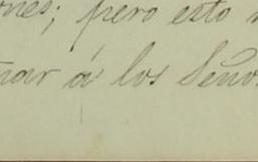 ones; pero esto
nar á los Seño